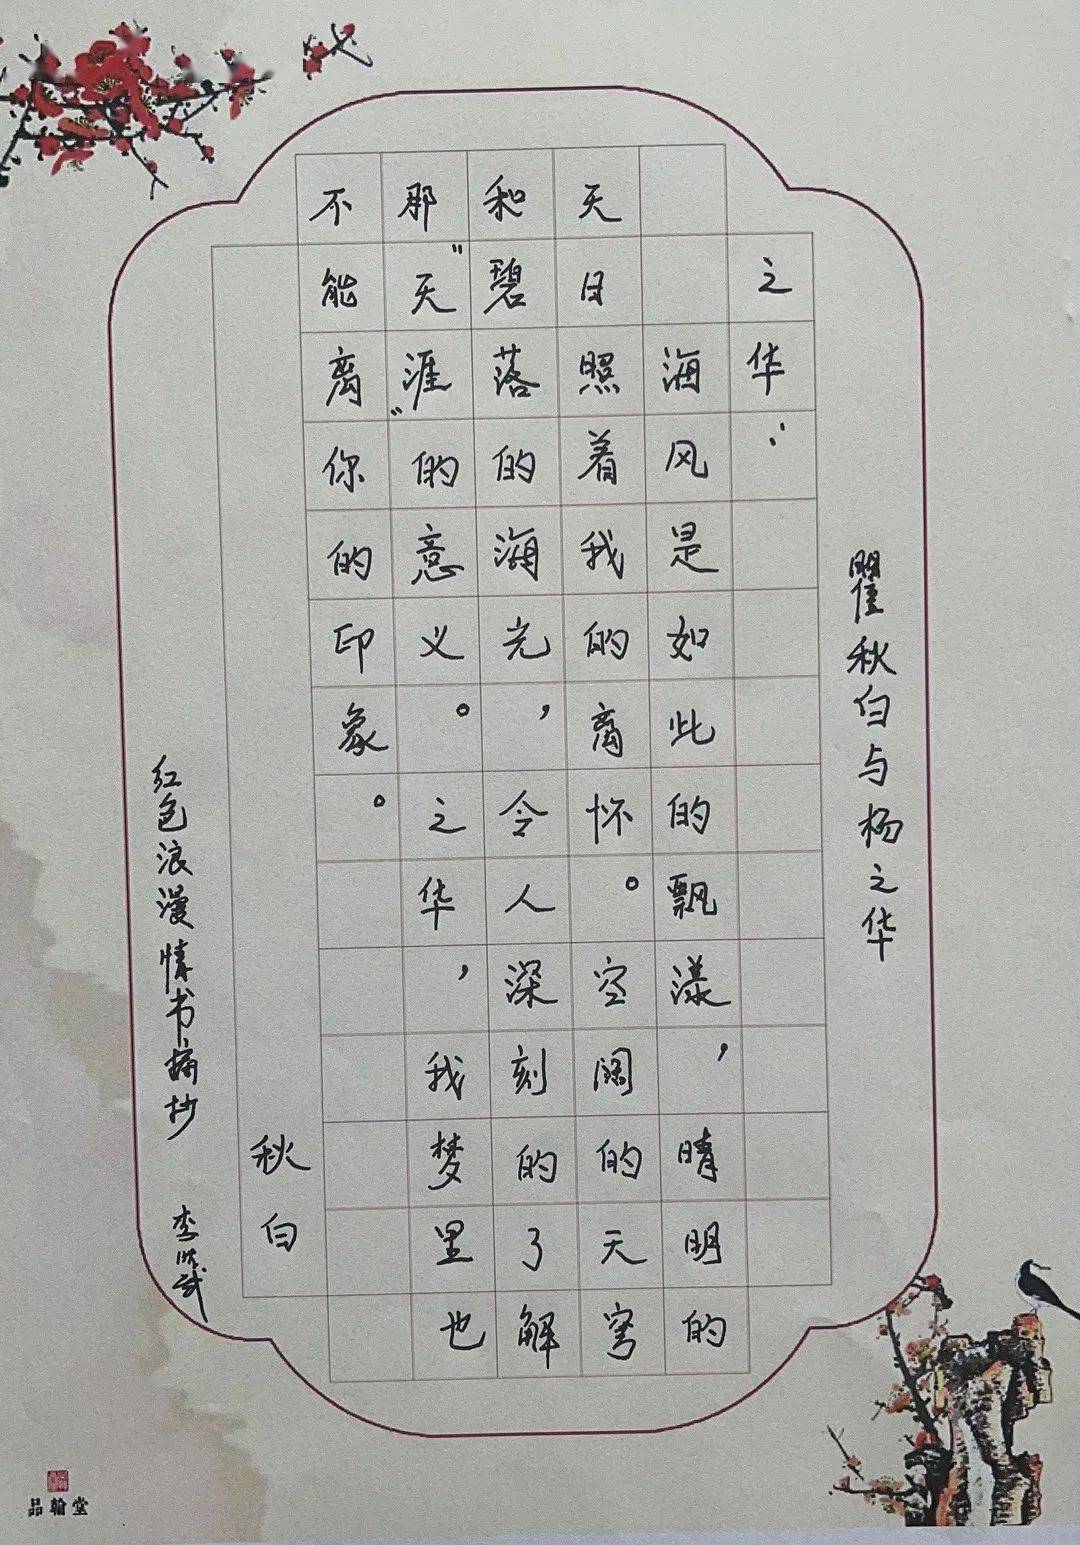 瞿秋白与杨之华
之华:
海风是如此的飘漾,晴明的
天日照着我的离怀。空阔的天穹
和碧落的海光,令人深刻的了解
那“天涯”的意义。之华,我梦里也
不能离你的印象。
秋白
红色浪漫情书摘抄 李
品翰堂